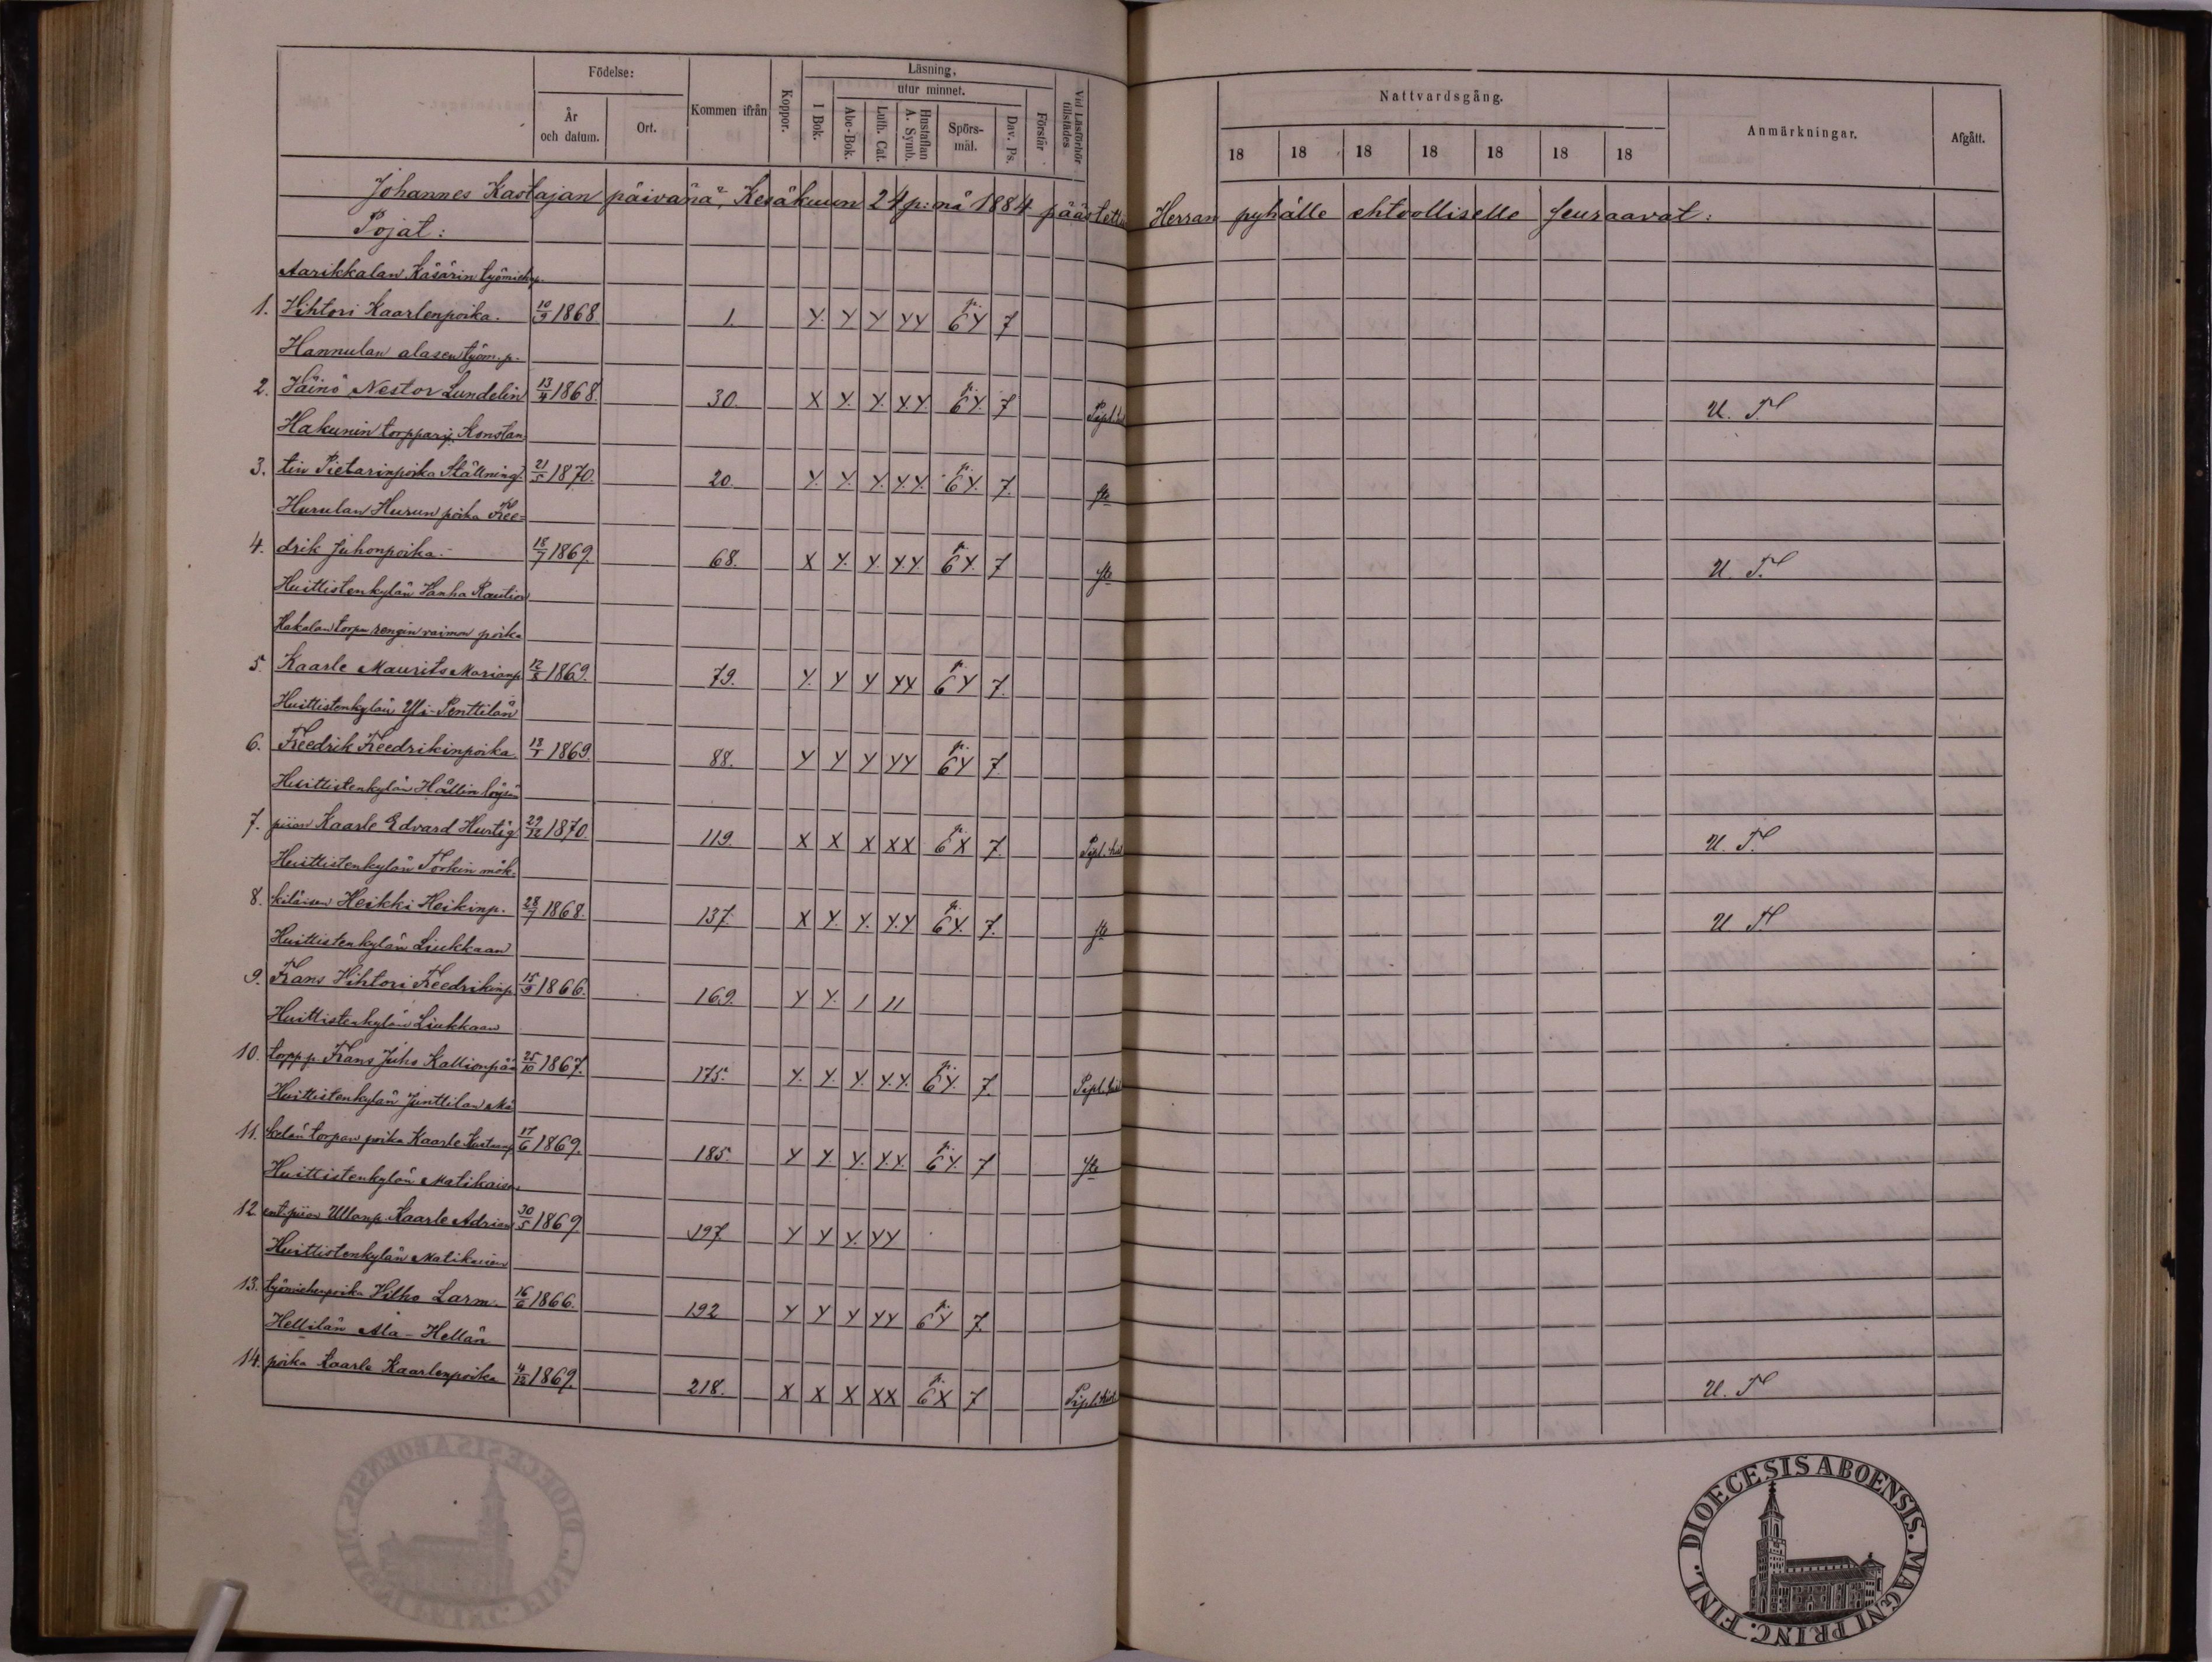 Födelse:
År och datum.
Ort.
Kommen ifrån
Koppor.
Läsning,
utur minnet.
I Bok.
Abc-Bok.
Luth. Cat.
Hustaflan A. Symb.
Spörsmål.
Dav. Ps.
Förstår
Vid Läsförhör tillstädes
Nattvardsgång.
18 18 18 18 18 18 18
Anmärkningar.
Afgått.
Johannes Kastajan päivänä, Kesäkuun 24 p:nä 1884 päästettiin Herran pyhälle ehtoolliselle seuraavat:
Pojat:
Aarikkalan Käsärin työmiehenp.
1. Vihtori Kaarlenpoika. 10/9 1868 1. Y. Y Y YY 6Y 7
Hannulan alasen työm. p.
2. Väinö Nestor Lundelin 13/4 1868. 30. X Y. Y. XY 6Y. 7 U. T.
Hakunin torpparip. Konstan
3. tin Pietarinpoika Ställning. 21/5 1870. 20. Y. Y. Y. Y.Y. 6Y. 7.
Hurulan Hurun poika Free=
4. drik Juhonpoika. 18/7 1869. 68. X Y. Y. Y.Y 6Y. 7 U. T.
Huittistenkylän Vanha Raution
Hakalan torpan rengin vaimon poika
5. Kaarle Maurits Marianp. 12/8 1869. 79. Y. Y Y YX 6Y 7.
Huittistenkylän Yli-Penttilän
6. Freedrik Freedrikinpoika 13/1 1869. 88. Y Y Y YY 6Y 7.
Huittistenkylän Hällin löysän
7. piian Kaarle Edvard Hurtig 29/12 1870. 119. X X X XX 6X 7. U. T.
Huittistenkylän Torkin mök=
8. kiläisen Heikki Heikinp. 28/7 1868. 137. X Y. Y. Y.Y 6Y. 7. U T
Huittistenkylän Liukkaan
9. Frans Vihtori Freedrikinp. 15/9 1866. 169. Y Y. 1 11
Huittistenkylän Liukkaan
10. torpp. p. Frans Juho Kallionpää 25/10 1867. 175. Y. Y. Y. Y.Y. 6Y. 7.
Huittistenkylän Junttilan Mä
11. kelän torpan poika Kaarle Kustaanp. 17/6 1869. 185. Y Y. Y. Y.Y. 6Y. 7
Huittistenkylän Matikaisen
12 ent. piian Ullanp. Kaarle Adrian 30/5 1869. 197 Y Y Y. YY
Huittistenkylän Matikaisen
13. työmiehenpoika Vilho Larm. 16/6 1866. 192 Y Y Y YY 6Y 7.
Hellilän Ala-Hellän
14. poika Kaarle Kaarlenpoika 4/12 1869. 218. X X X XX 6X 7 U. T
DIOECESIS ABOENSIS. MAGNI PRINC. FINL.